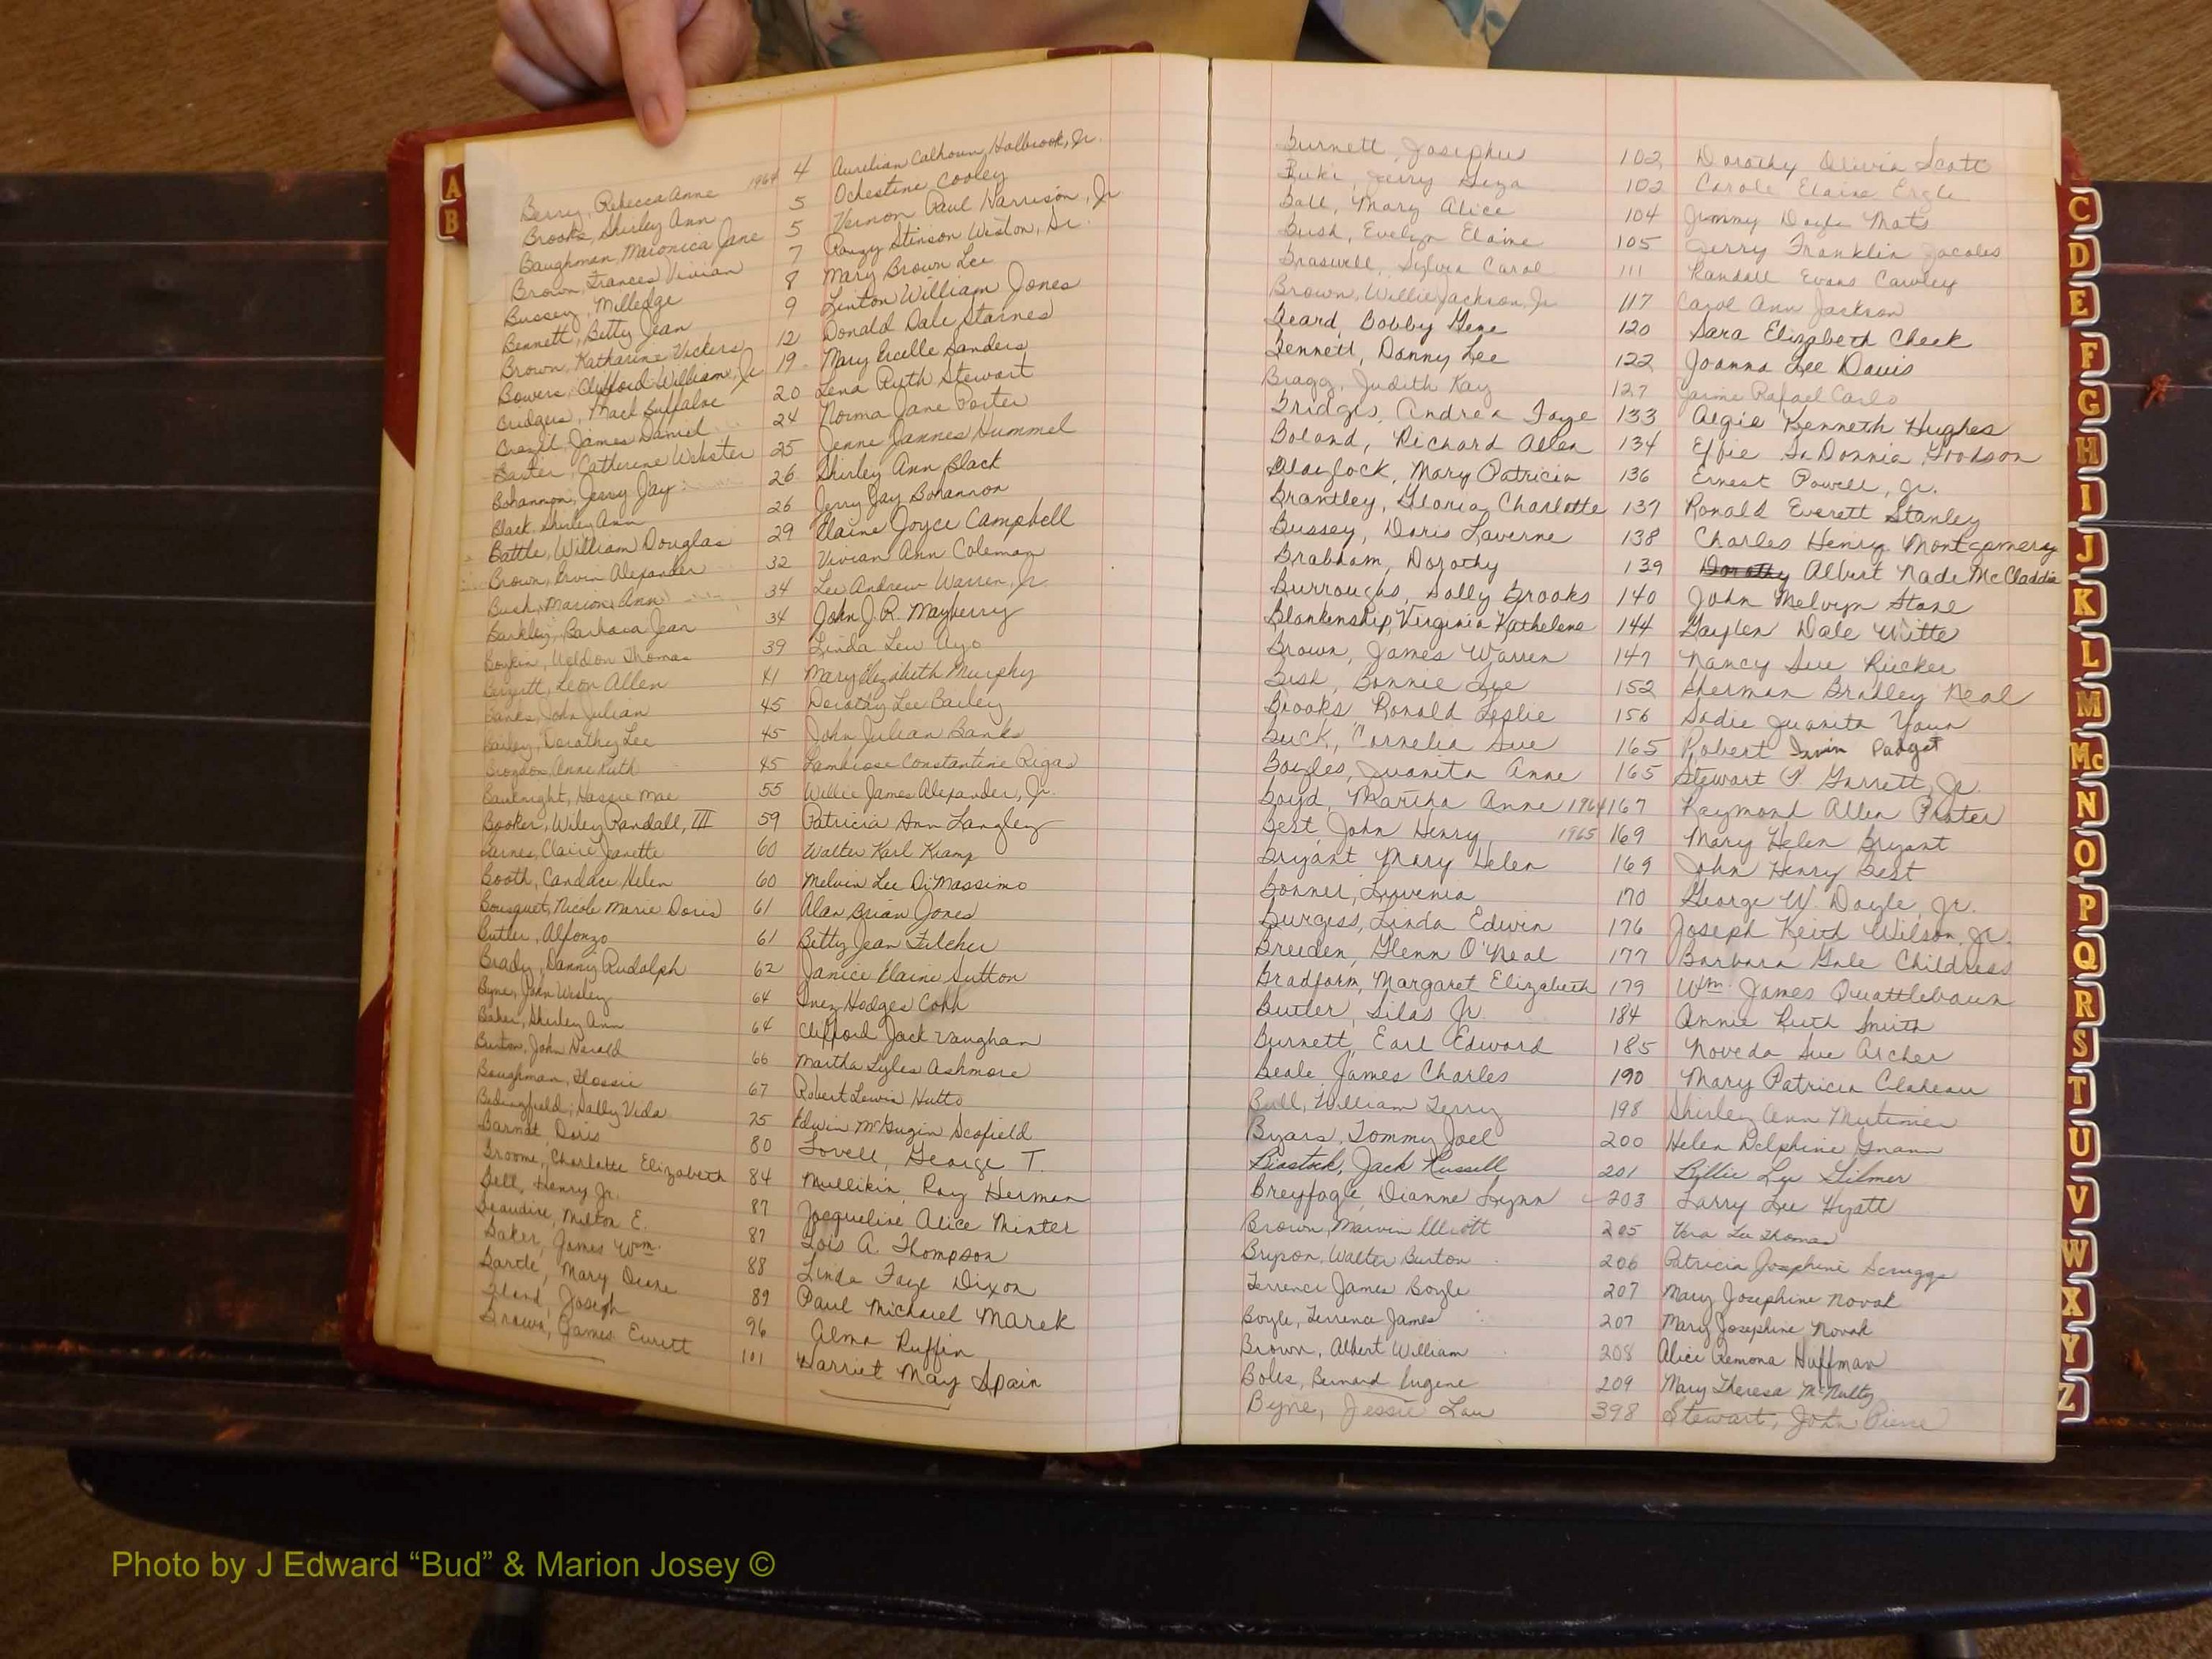 A
B
Berry, Rebecca Anne 1964 4 Aurelian Calhoun Holbrook, Jr.
Brooks, Shirley Ann 5 Ochestine Cooley
Baughman, Maronica Jane 5 Vernon Paul Harrison, Jr
Brown, Frances Vivian 7 Stinson Weston, Sr.
Bussey, Milledge 8 Mary Brown Lee
Bennett, Betty Jean 9 Linton William Jones
Brown, Katharine Vickers 12 Donald Dale Starnes
Bowers, Clifford William, Jr. 19 Mary Ercelle Sanders
Bridgers, Mack Buffaloe 20 Lena Ruth Stewart
Brazil, James Daniel 24 Norma Jane Porter
Baxter, Catherine Webster 25 Jenne Jannes Hummel
Bohannon, Jerry Jay 26 Shirley Ann Black
Black, Shirley Ann 26 Jerry Jay Bohannon
Battle, William Douglas 29 Elaine Joyce Campbell
Brown, Ervin Alexander 32 Vivian Ann Coleman
Bush, Marion Ann 34 Lee Andrew Warren, Jr.
Barkley, Barbara Jean 34 John J. R. Mayberry
Boykin, Weldon Thomas 39 Linda Lew Ayo
Leon Allen 41 Mary Elizabeth Murphy
Banks, John Julian 45 Dorothy Lee Bailey
Bailey, Dorothy Lee 45 John Julian Banks
Brogdon, Anne Ruth 45 Lambrose Constantine Rigas
Bauknight, Hassie Mae 55 Willie James Alexander, Jr.
Booker, Wiley Randall, III 59 Patricia Ann Langley
Barnes, Claire Janette 60 Walter Karl Kramp
Booth, Candace Helen 60 Melvin Lee DiMassimo
Bousquet, Nicole Marie Doris 61 Alan Brian Jones
Butler, Alfonzo 61 Betty Jean Filcher
Brady, Danny Rudolph 62 Janice Elaine Sutton
Byne, John Wesley 64 Inez Hodges Cohn
Baker, Shirley Ann 64 Clifford Jack Vaughan
Burton, John Herald 66 Martha Lyles Ashmore
Baughman, Flossie 67 Robert Lewis Hutto
Bedingfield, Sally Vida 75 Edwin McGugin Scofield
Barndt, Doris 80 Lovell, George T.
Broome, Charlotte Elizabeth 84 Mullikin, Roy Herman
Bell, Henry Jr. 87 Jacqueline Alice Minter
Beaudire, Milton E. 87 Lois A. Thompson
Baker, James Wm. 88 Linda Faye Dixon
Bartle, Mary Diane 89 Paul Michael Marek
Bland, Joseph 96 Alma Ruffin
Brown, James Evrett 101 Harriet May Spain
Burnett, Josephus 102 Dorothy Olivia Scott
Jerry 102 Carole Elaine Ergle
Ball, Mary Alice 104 Jimmy Doyle Mots
Bush, Evelyn Elaine 105 Jerry Franklin Jacobs
Braswell, Sylvia Carol 111 Randall Evans Cawley
Brown, Willie Jackson, Jr 117 Carol Ann Jackson
Beard, Bobby Gene 120 Sara Elizabeth Cheek
Bennett, Danny Lee 122 Joanna Lee Davis
Bragg, Judith Kay 127 Jaime Rafael Carlo
Bridges, Andrea Faye 133 Algie Kenneth Hughes
Boland, Richard Allen 134 Effie LaDonnia Dodson
Blaylock, Mary Patricia 136 Ernest Powell, Jr.
Brantley, Gloria Charlotte 137 Ronald Everett Stanley
Bussey, Doris Laverne 138 Charles Henry Montgomery
Brabham, Dorothy 139 Dorothy Albert Nade McCladdie
Burroughs, Sally Brooks 140 John Melvyn Stone
Blankenship, Virginia Kathelene 144 Gaylen Dale Witte
Brown, James Warren 147 Nancy Sue Rucker
Bush, Bonnie Lee 152 Sherman Bradley Neal
Brooks, Ronald Leslie 156 Sadie Juanita Youn
Buck, Cornelia Sue 165 Robert Irvin Padget
Boyles, Juanita Anne 165 Stewart P. Garrett, Jr.
Boyd, Martha Anne 1964 167 Raymond Allen Prater
Best, John Henry 1965 169 Mary Helen Bryant
Bryant Mary Helen 169 John Henry Best
Bonner, Luvenia 170 George W. Doyle, Jr.
Burgess, Linda Edwin 176 Joseph Keith Wilson, Jr.
Breeden, Glenn O'Neal 177 Barbara Gale Childress
Bradform, Margaret Elizabeth 179 Wm. James Quattlebaum
Butler, Silas Jr. 184 Annie Ruth Smith
Burnett, Earl Edward 185 Noveda Sue Archer
Beale, James Charles 190 Mary Patricia Cladeau
Bull, William Terry 198 Shirley Ann Mutimer
Byars, Tommy Joel 200 Helen Delphine Gnann
Biastock, Jack Russell 201 Billie Lu Gilmer
Breyfogle, Dianne Lynn 203 Larry Lee Hyatt
Brown, Marvin Elliott 205 Vera Lee Thomas
Bryson, Walter Burton 206 Patricia Josephine Scruggs
Terrence James Boyle 207 Mary Josephine Novak
Boyle, Terrence James 207 Mary Josephine Novak
Brown, Albert William 208 Alice Remona Huffman
Boles, Bernard Eugene 209 Mary Theresa McNulty
Byne, Jessie Lou 398 Stewart, John Pierce
C
D
E
F
G
H
I
J
K
L
M
Mc
N
O
P
Q
R
S
T
U
V
W
X
Y
Z
Photo by J Edward “Bud” & Marion Josey ©